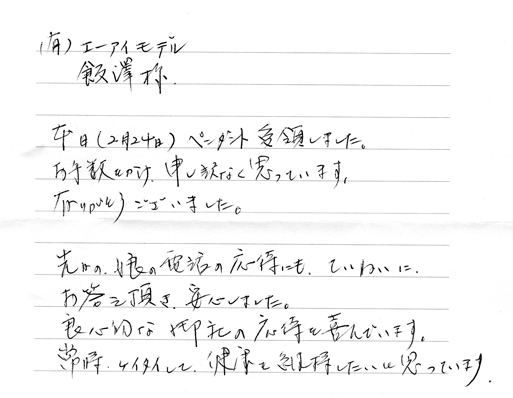 (有)エーアイモデル
飯澤様
本日(2月24日)ペンダント受領しました。
お手数をかけ、申し訳なく思っています。
ありがとうございました。
先日の、娘の電話の応待にも、ていねいに、
お答え頂き、安心しました。
良心的な御社の応待を喜んでいます。
常時、ケイタイして、健康を維持したいと思っています。